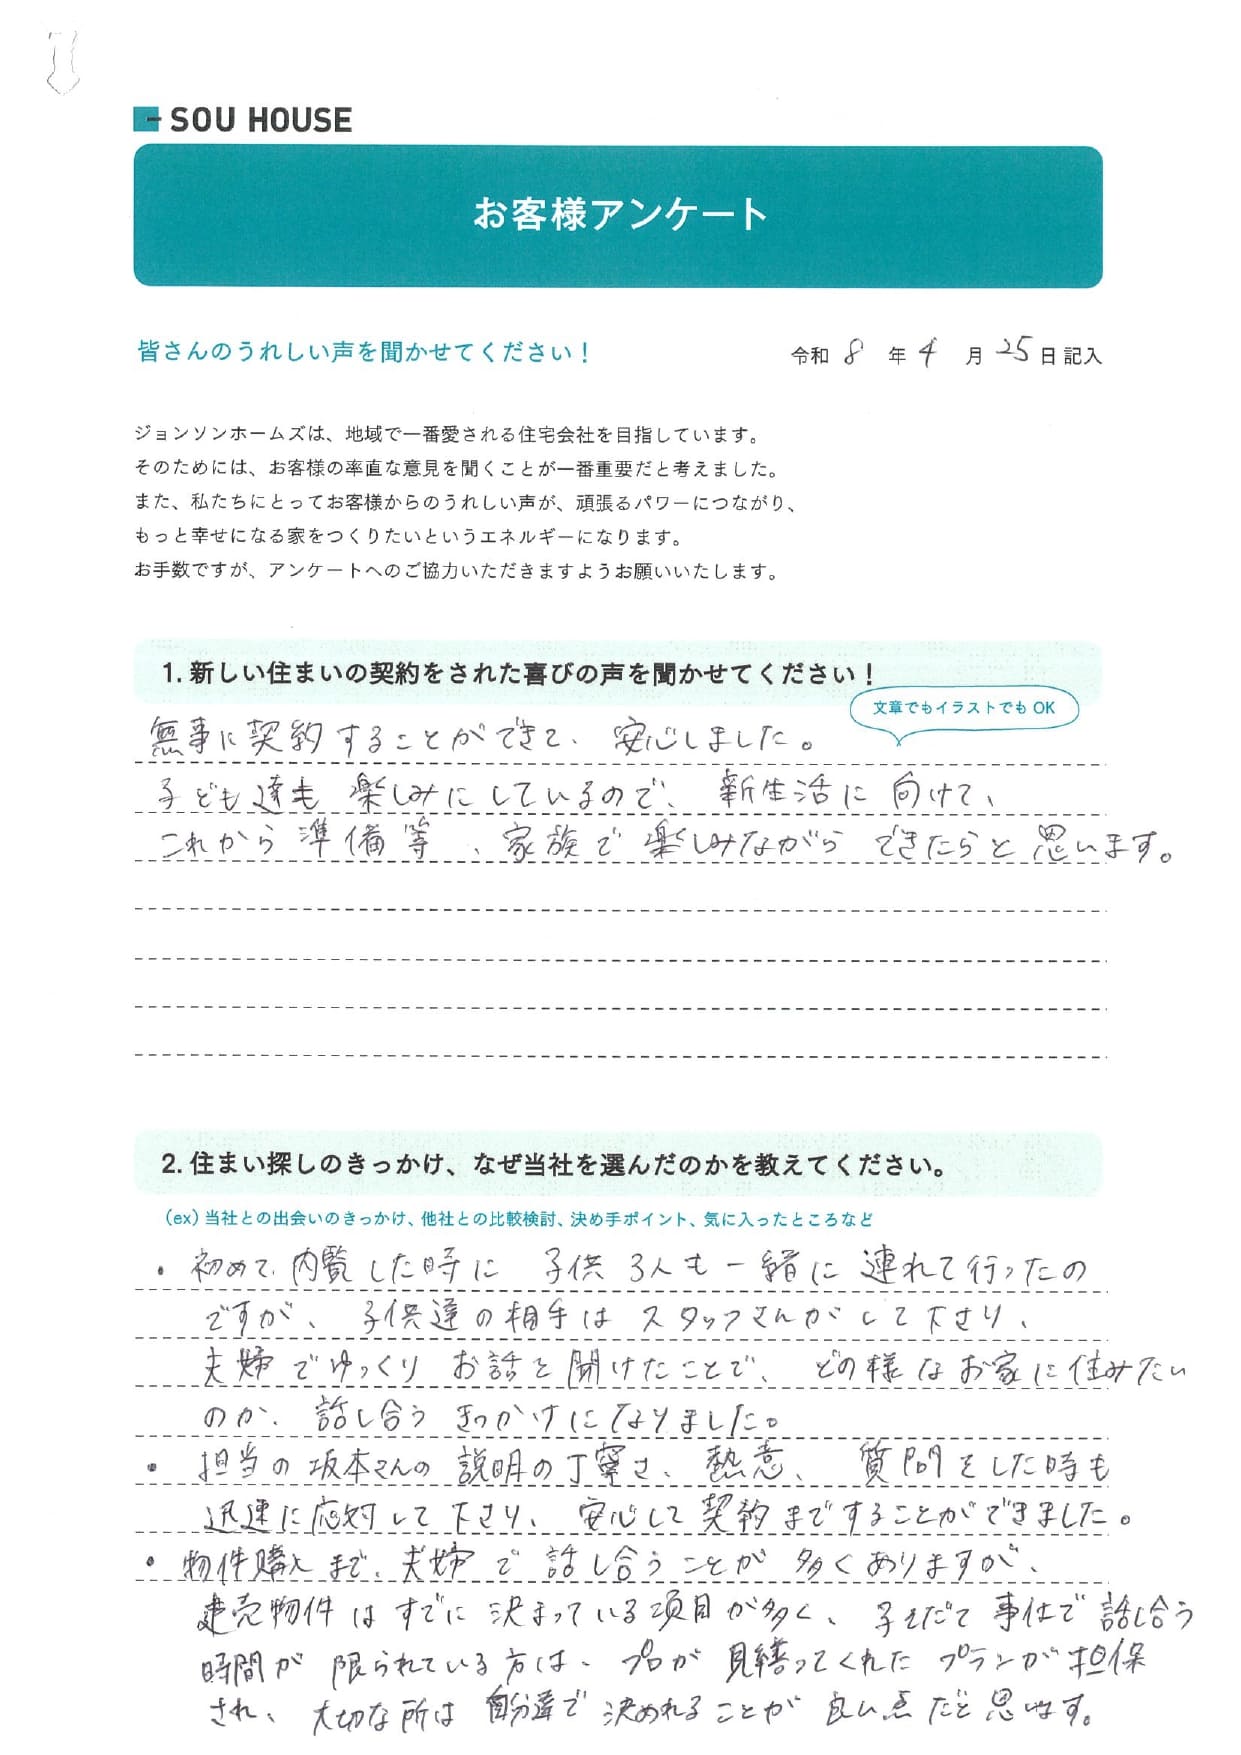 SOU HOUSE
お客様アンケート
皆さんのうれしい声を聞かせてください！
令和 8 年 4 月 25 日 記入
ジョンソンホームズは、地域で一番愛される住宅会社を目指しています。
そのためには、お客様の率直な意見を聞くことが一番重要だと考えました。
また、私たちにとってお客様からのうれしい声が、頑張るパワーにつながり、
もっと幸せになる家をつくりたいというエネルギーになります。
お手数ですが、アンケートへのご協力いただきますようお願いいたします。
1. 新しい住まいの契約をされた喜びの声を聞かせてください！
文章でもイラストでもOK
無事に契約することができて、安心しました。
子ども達も楽しみにしているので、新生活に向けて、
これから準備等、家族で楽しみながらできたらと思います。
2. 住まい探しのきっかけ、なぜ当社を選んだのかを教えてください。
（ex）当社との出会いのきっかけ、他社との比較検討、決め手ポイント、気に入ったところなど
・初めて内覧した時に 子供3人も一緒に連れて行ったの
ですが、子供達の相手はスタッフさんがして下さり、
夫婦でゆっくりお話を聞けたことで、どの様なお家に住みたい
のか、話し合うきっかけになりました。
・担当の坂本さんの説明の丁寧さ、熱意、質問をした時も
迅速に応対して下さり、安心して契約まですることができました。
・物件購入まで、夫婦で話し合うことが多くありますが、
建売物件はすでに決まっている項目が多く、子そだて事仕で話し合う
時間が限られている方は、プロが見繕ってくれたプランが担保
され、大切な所は自分達で決めれることが良い点だと思います。